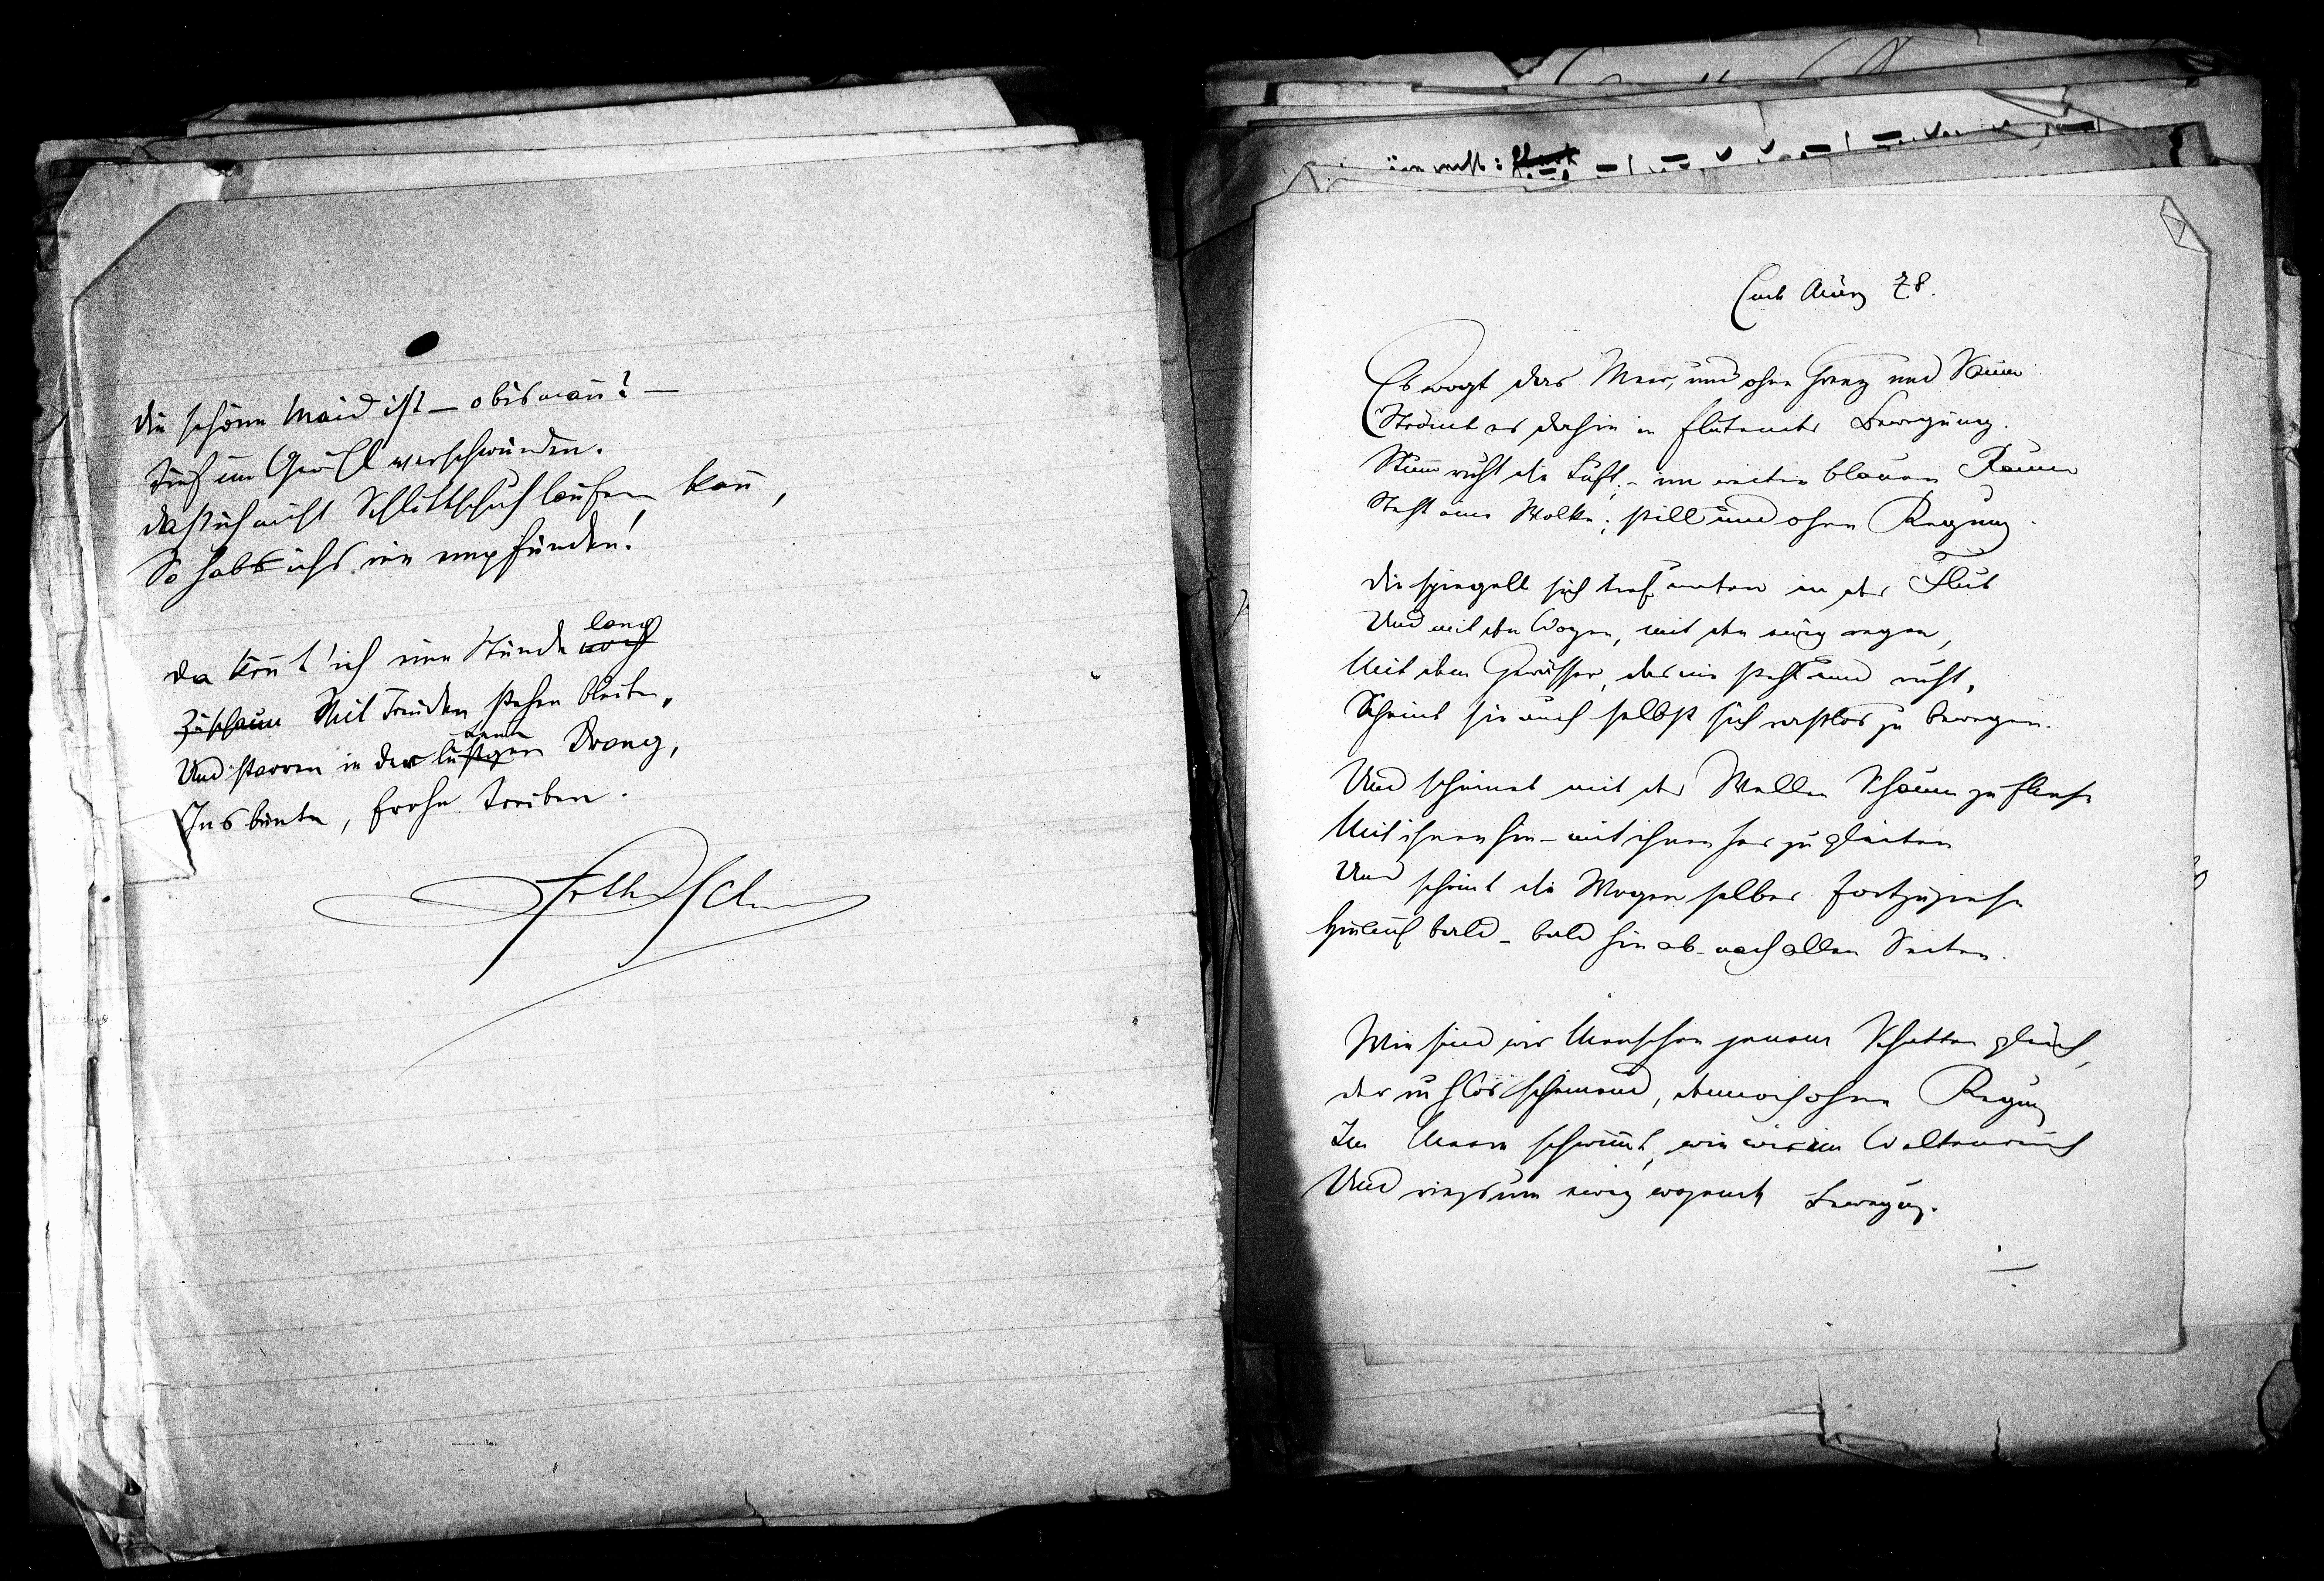 Die schöne Maid ist – o bis wann? –
Tief im Gewühl verschwunden.
Daß ich nicht Schlittschuh laufen kann,
So hab ichs nie empfunden!
Da könnt' ich eine Stunde noch lang
Zuschaun Mit Freuden stehen bleiben,
Und starren in der lustgen Drang,
Ins bunte, frohe Treiben.
ArthSch
Ende März 78.
Es wogt das Meer, und ohne Grenz und Saum
Strömt es dahin in flutender Bewegung.
Stumm ruht die Luft; – im weiten blauen Raum
Steht eine Wolke; still und ohne Regung.
Die spiegelt sich tief unten in der Flut
Und mit den Wogen, mit den ewig regen,
Mit dem Gewässer, das nie steht und ruht,
Scheint sie auch selbst sich rastlos zu bewegen.
Und scheinet mit der Wellen Schaum zu fliehn
Mit ihnen hin – mit ihnen her zu gleiten
Und scheint die Wogen selber fortzuziehn
Hinauf bald – bald hinab – nach allen Seiten.
Wie sind wir Menschen jenem Schatten gleich,
Der ruhlos scheinend, dennoch ohne Regung
Im Meere schwimmt, wie wir im Weltenreich
Und ringsum ewig wogende Bewegung.